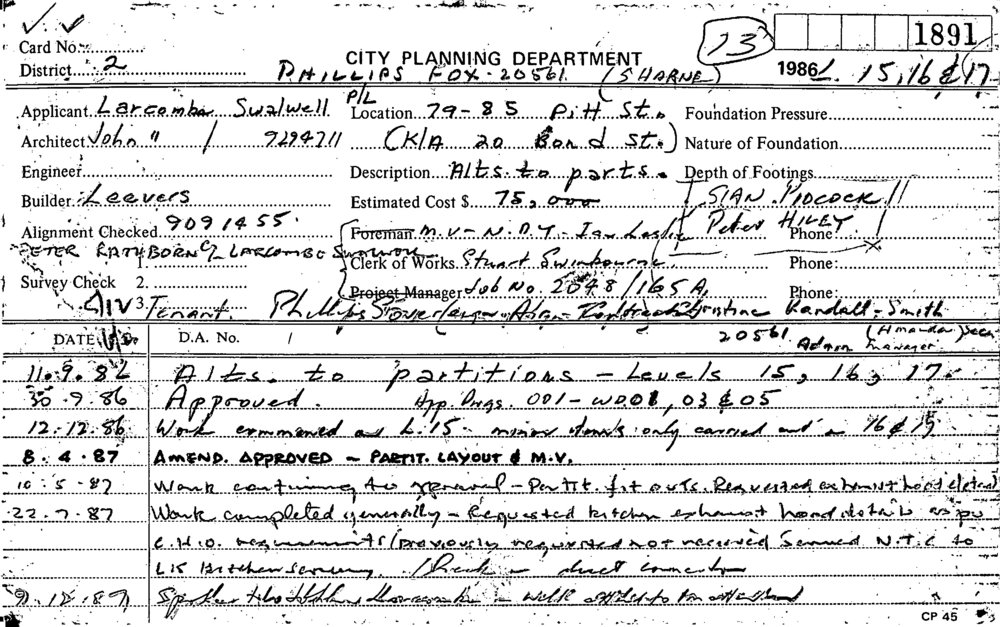 Card No.
13
1891
District 2
CITY PLANNING DEPARTMENT
PHILLIPS FOX - 20561 (SHARNE)
1986 L. 15, 16 & 17
Applicant Larcombe Swalwell P/L
Location 79-85 Pitt St.
Foundation Pressure
Architect John " / 9294711
(K/A 20 Bond St.)
Nature of Foundation
Engineer
Description Alts. to parts.
Depth of Footings
Builder Leevers
Estimated Cost $ 75,000
SIAN PIDCOCK
Alignment Checked 9091455
Foreman M.V - N.D.Y - Ian Leslie
Peter HILEY
Phone
PETER RATHBORN C/- LARCOMBE
1.
Clerk of Works Stuart Swinbourne
Phone:
Survey Check 2.
Project Manager Job No. 2048/165A
Phone:
3. Tenant. Phillips
Kendall-Smith
20561
Admin Manager
DATE
D.A. No. /
11.9.86 Alts. to partitions - Levels 15, 16, 17.
30.9.86 Approved. App. Dwgs. 001-WD01, 03 & 05
12.12.86 Work commenced on L.15 - minor items only carried out on 16 & 17
8.4.87 AMEND. APPROVED - PARTIT. LAYOUT & M.V.
10.5.87 Work continuing to approval - Partit. fit outs. Requested exhaust hood details
22.7.87 Work completed generally - Requested kitchen exhaust hood details as per
C.H.O. requirements (previously requested not received Served N.T.C to
L15 kitchen duct connection
CP 45